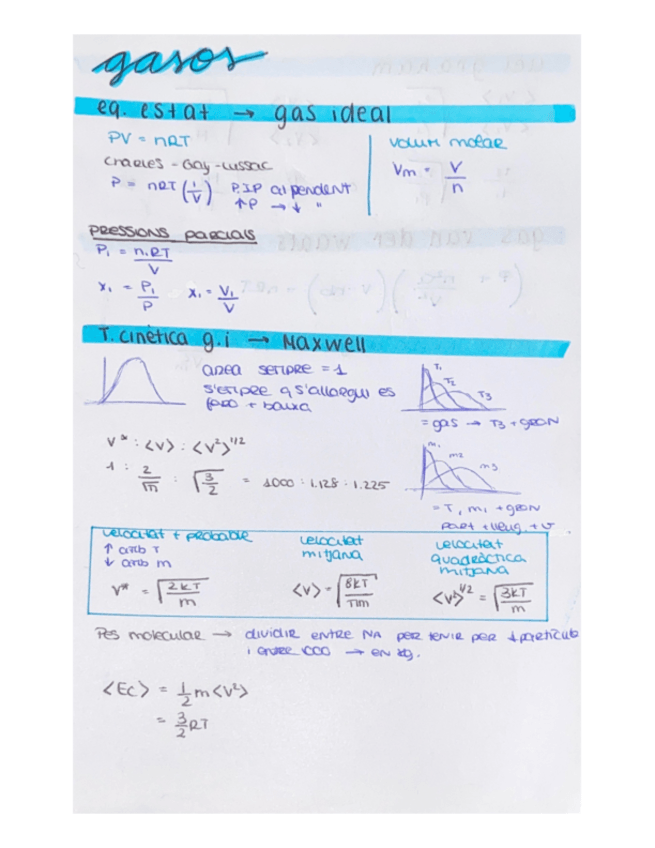 gasos
eq. estat → gas ideal
PV = nRT
Charles - Gay-Lussac
P = nRT (1/V) P.I.P al pendent
↑P → ↓ "
volum molar
Vm = V/n
PRESSIONS PARCIALS
P₁ = n₁RT/V
x₁ = P₁/P x₁ = V₁/V
T. cinètica g.i → Maxwell
area sempre = 1
sempre q s'allargui es
fa + baixa
T₁
T₂
T₃
= gas → T₃ + gran
v* : <v> : <v²>^1/2
1 : 2/√π : √3/2 = 1000 : 1.128 : 1.225
m₁
m₂
m₃
= T, m₁ + gran
part + lleug. + v
velocitat + probable
↑ amb T
↓ amb m
v* = √2kT/m
velocitat
mitjana
<v> = √8kT/πm
velocitat
quadràtica
mitjana
<v²>^1/2 = √3kT/m
Pes molecular → dividir entre NA per tenir per ↓ partícula
i entre 1000 → en kg.
<Ec> = 1/2 m<v²>
= 3/2 RT